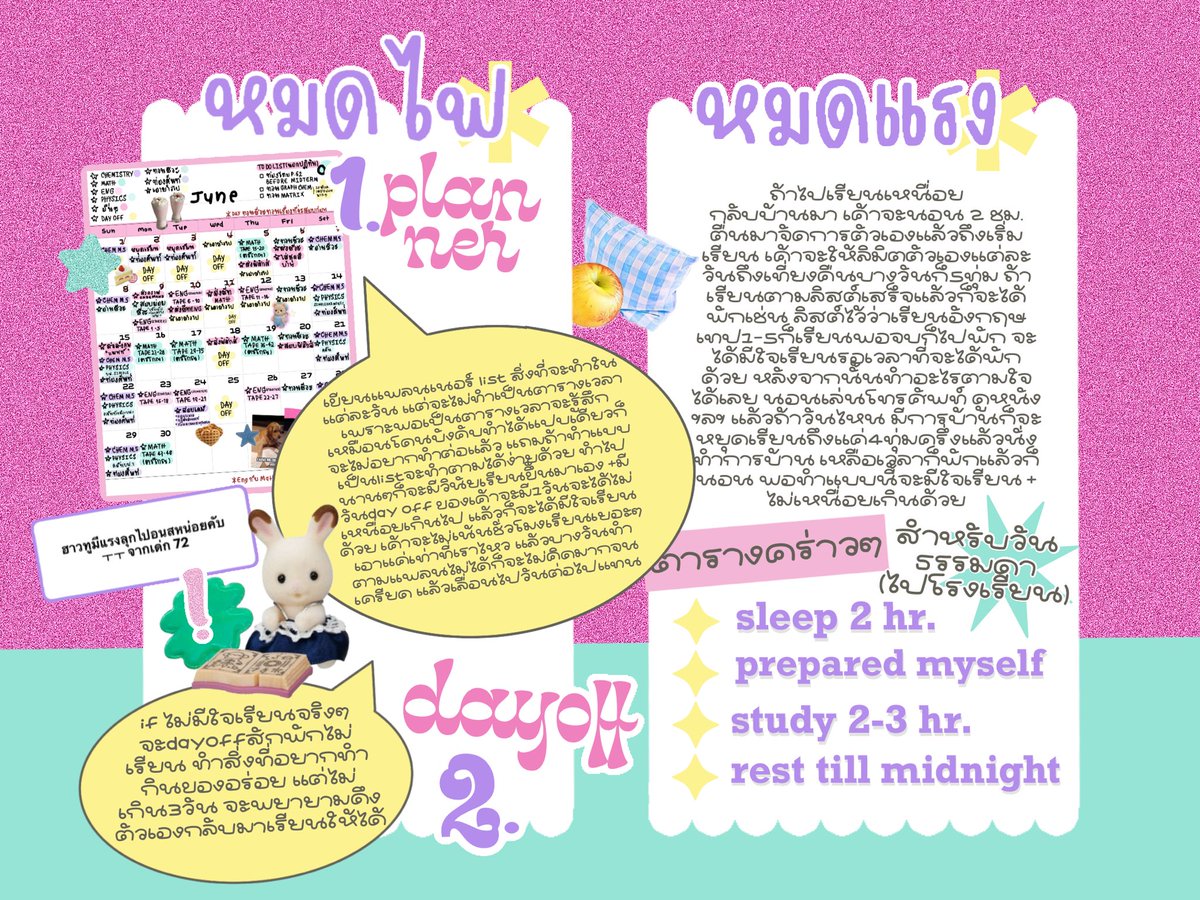 หมดไฟ
1. plan
ner
CHEMISTRY
MATH
ENG
PHYSICS
DAY OFF
BEFORE MIDTERM
ทวน GRAPH CHEM
ทวน MATRIX
June
Sun Mon Tue Wed Thu Fri Sat
เขียนแพลนเนอร์ list สิ่งที่จะทำใน
แต่ละวัน แต่จะไม่ทำเป็นตารางเวลา
เพราะพอเป็นตารางเวลาจะรู้สึก
เหมือนโดนบังคับทำได้แปบเดียวก็
จะไม่อยากทำต่อแล้ว แถมถ้าทำแบบ
เป็นlistจะทำตามได้ง่ายด้วย ทำไป
นานๆก็จะมีวินัยเรียนขึ้นมาเอง +มี
วันday off ของเค้าจะมี1วันจะได้ไม่
เหนื่อยเกินไป แล้วก็จะได้มีใจเรียน
ด้วย เค้าจะไม่เน้นชั่วโมงเรียนเยอะๆ
เอาแค่เท่าที่เราไหว แล้วบางวันทำ
ตามแพลนไม่ได้ก็จะไม่คิดมากจน
เครียด แล้วเลื่อนไปวันต่อไปแทน
ฮาวทูมีแรงลุกไปอนสหน่อยคับ
TT จากเด็ก 72
2. dayoff
if ไม่มีใจเรียนจริงๆ
จะdayoffสักพักไม่
เรียน ทำสิ่งที่อยากทำ
กินของอร่อย แต่ไม่
เกิน3วัน จะพยายามดึง
ตัวเองกลับมาเรียนให้ได้
หมดแรง
ถ้าไปเรียนเหนื่อย
กลับบ้านมา เค้าจะนอน 2 ชม.
ตื่นมาจัดการตัวเองแล้วถึงเริ่ม
เรียน เค้าจะให้ลิมิตตัวเองแต่ละ
วันถึงเที่ยงคืนบางวันก็5ทุ่ม ถ้า
เรียนตามลิสต์เสร็จแล้วก็จะได้
พักเช่น ลิสต์ไว้ว่าเรียนอังกฤษ
เทป1-5ก็เรียนพอจบก็ไปพัก จะ
ได้มีใจเรียนรอเวลาที่จะได้พัก
ด้วย หลังจากนั้นทำอะไรตามใจ
ได้เลย นอนเล่นโทรศัพท์ ดูหนัง
ฯลฯ แล้วถ้าวันไหน มีการบ้านก็จะ
หยุดเรียนถึงแค่4ทุ่มครึ่งแล้วนั่ง
ทำการบ้าน เหลือเวลาก็พักแล้วก็
นอน พอทำแบบนี้จะมีใจเรียน +
ไม่เหนื่อยเกินด้วย
ตารางคร่าวๆ
สำหรับวัน
ธรรมดา
(ไปโรงเรียน)
sleep 2 hr.
prepared myself
study 2-3 hr.
rest till midnight